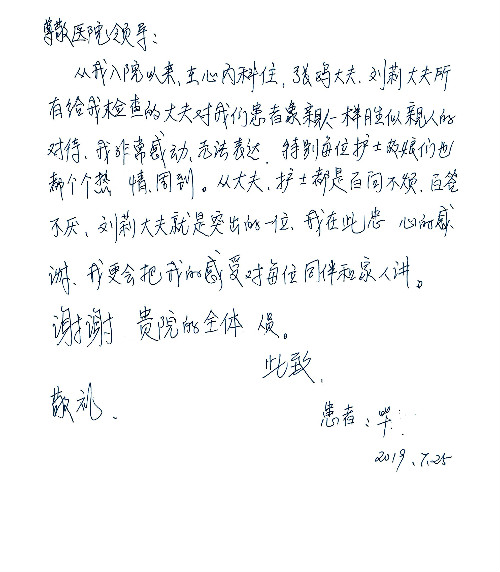 尊敬医院领导：
从我入院以来，主心内科住，张鸣大夫、刘莉大夫所
有给我检查的大夫对我们患者象亲人一样胜似亲人的
对待、我非常感动，无法表达．特别每位护士姑娘们也
都个个热 情、周到。从大夫、护士都是百问不烦．百答
不厌、刘莉大夫就是突出的一位、我在此忠 心的感
谢、我更会把我的感受对每位同伴和家人讲。
谢谢 贵院的全体 员。
此致．
敬礼．
患者：毕
2019．7．25